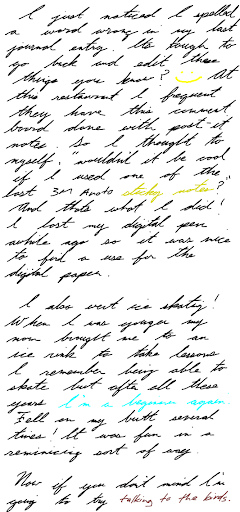 I just noticed I spelled
a word wrong in my last
journal entry. Its tough to
go back and edit these
things you know? At
this restaurant I frequent
they have this comment
board done with post-it
notes. So I thought to
myself, "wouldn't it be cool
if I used one of the
last 3M Anoto sticky notes?
And thats what I did!
I lost my digital pen
awhile ago so it was nice
to find a use for the
digital paper.
I also went ice skating!
When I was younger my
mom brought me to an
ice rink to take lessons
I remember being able to
skate but after all these
years I'm a beginner again.
Fell on my butt several
times! It was fun in a
reminicing sort of way.
Now if you don't mind I'm
going to try talking to the birds.